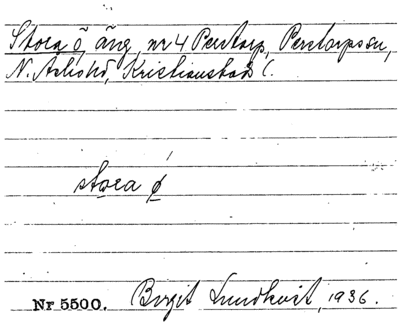 Stora ö, äng, nr 4 Perstorp, Perstorps sn,
N. Åsbo hd, Kristianstads l.
stora ø
Nr 5500. Birgit Lundkvist, 1936.